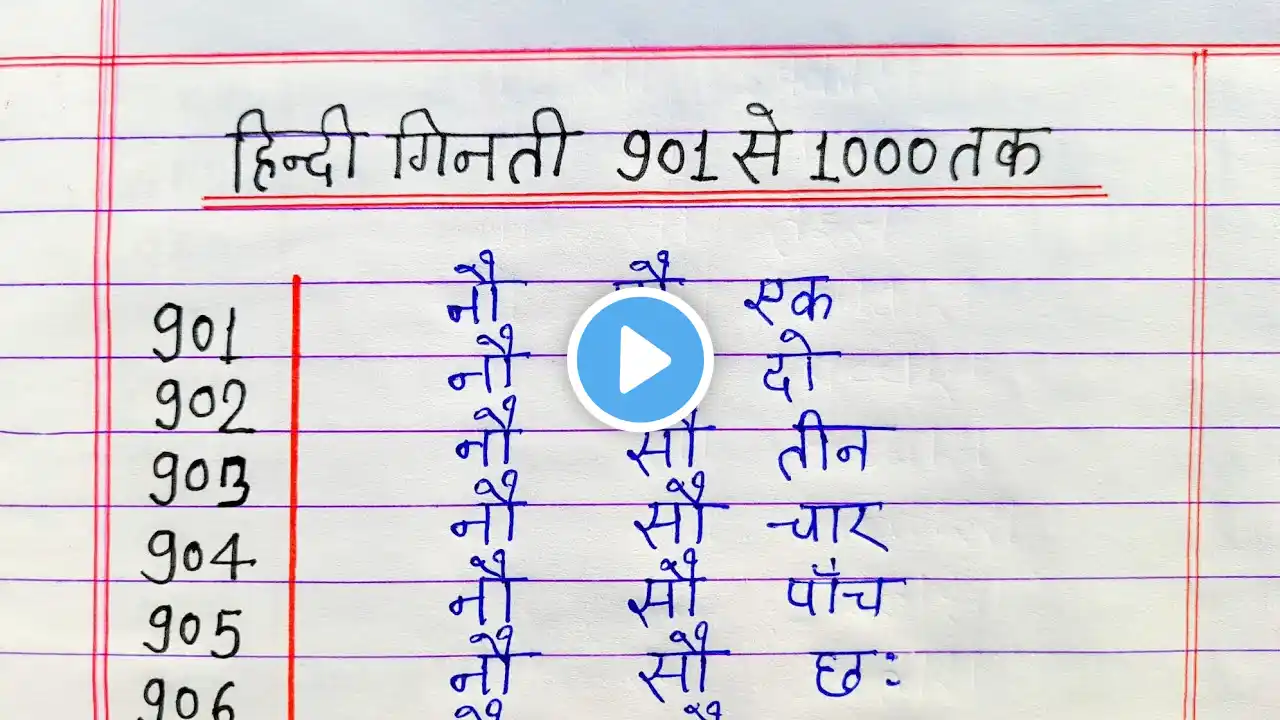 हिन्दी गिनती 901 से 1000 तक
901 नौ एक
902 नौ दो
903 नौ सौ तीन
904 नौ सौ चार
905 नौ सौ पाँच
906 नौ सौ छः